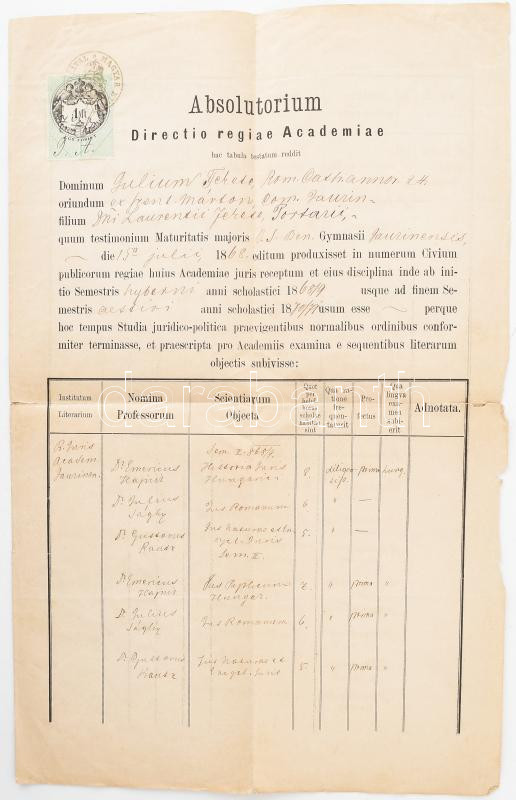 Absolutorium
Directio regiae Academiae
hac tabula testatum reddit
Dominum Julium Rom. Cath. annor. 24
oriundum ex Szent Márton, Com. Jaurin-
filium Dni Laurentii
quum testimonium Maturitatis majoris O. S. Ben. Gymnasii Jaurinensis,
die 15a julii 1868 editum produxisset in numerum Civium
publicorum regiae huius Academiae juris receptum et eius disciplina inde ab ini-
tio Semestris hyberni anni scholastici 1868/9 usque ad finem Se-
mestris aestivi anni scholastici 1870/71 usum esse perque
hoc tempus Studia juridico-politica praevigentibus normalibus ordinibus confor-
miter terminasse, et praescripta pro Academiis examina e sequentibus literarum
objectis subivisse:
Institutum Literarium
Nomina Professorum
Scientiarum Objecta
Quot per hebdomadam horas scholae habitae sint
Qua ratione frequentaverit
Profectus
Qua lingva examen subierit
Adnotata.
R. Juris Academ. Jaurinen.
Sem. I. 868/9.
Dr Emericus Hajnik Historia Juris Hungarici 8. prima hung.
Dr Julius Sághy Jus Romanum 6. " —
Dr Gustavus Kautz Jus Naturae 5. " —
Sem. II.
Dr Emericus Hajnik Jus Publicum Hungar. " prima "
Dr Julius Sághy Jus Romanum 6. " prima "
Dr Gustavus Kautz Jus Naturae et 5 " prima "
darabanth